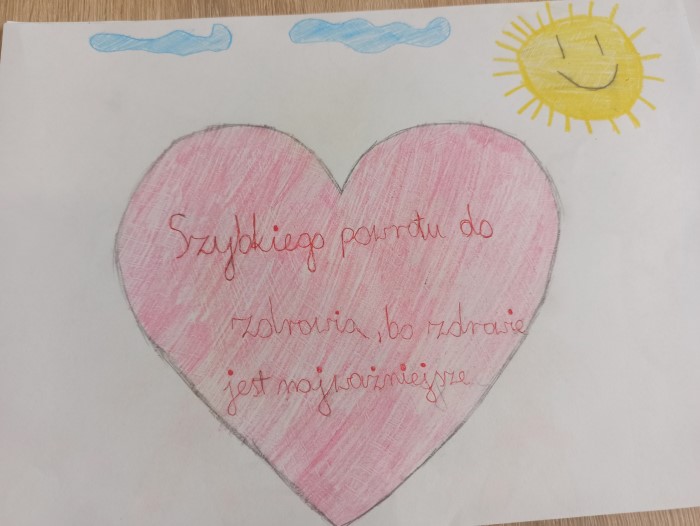 Szybkiego powrotu do
zdrowia, bo zdrowie
jest najważniejsze